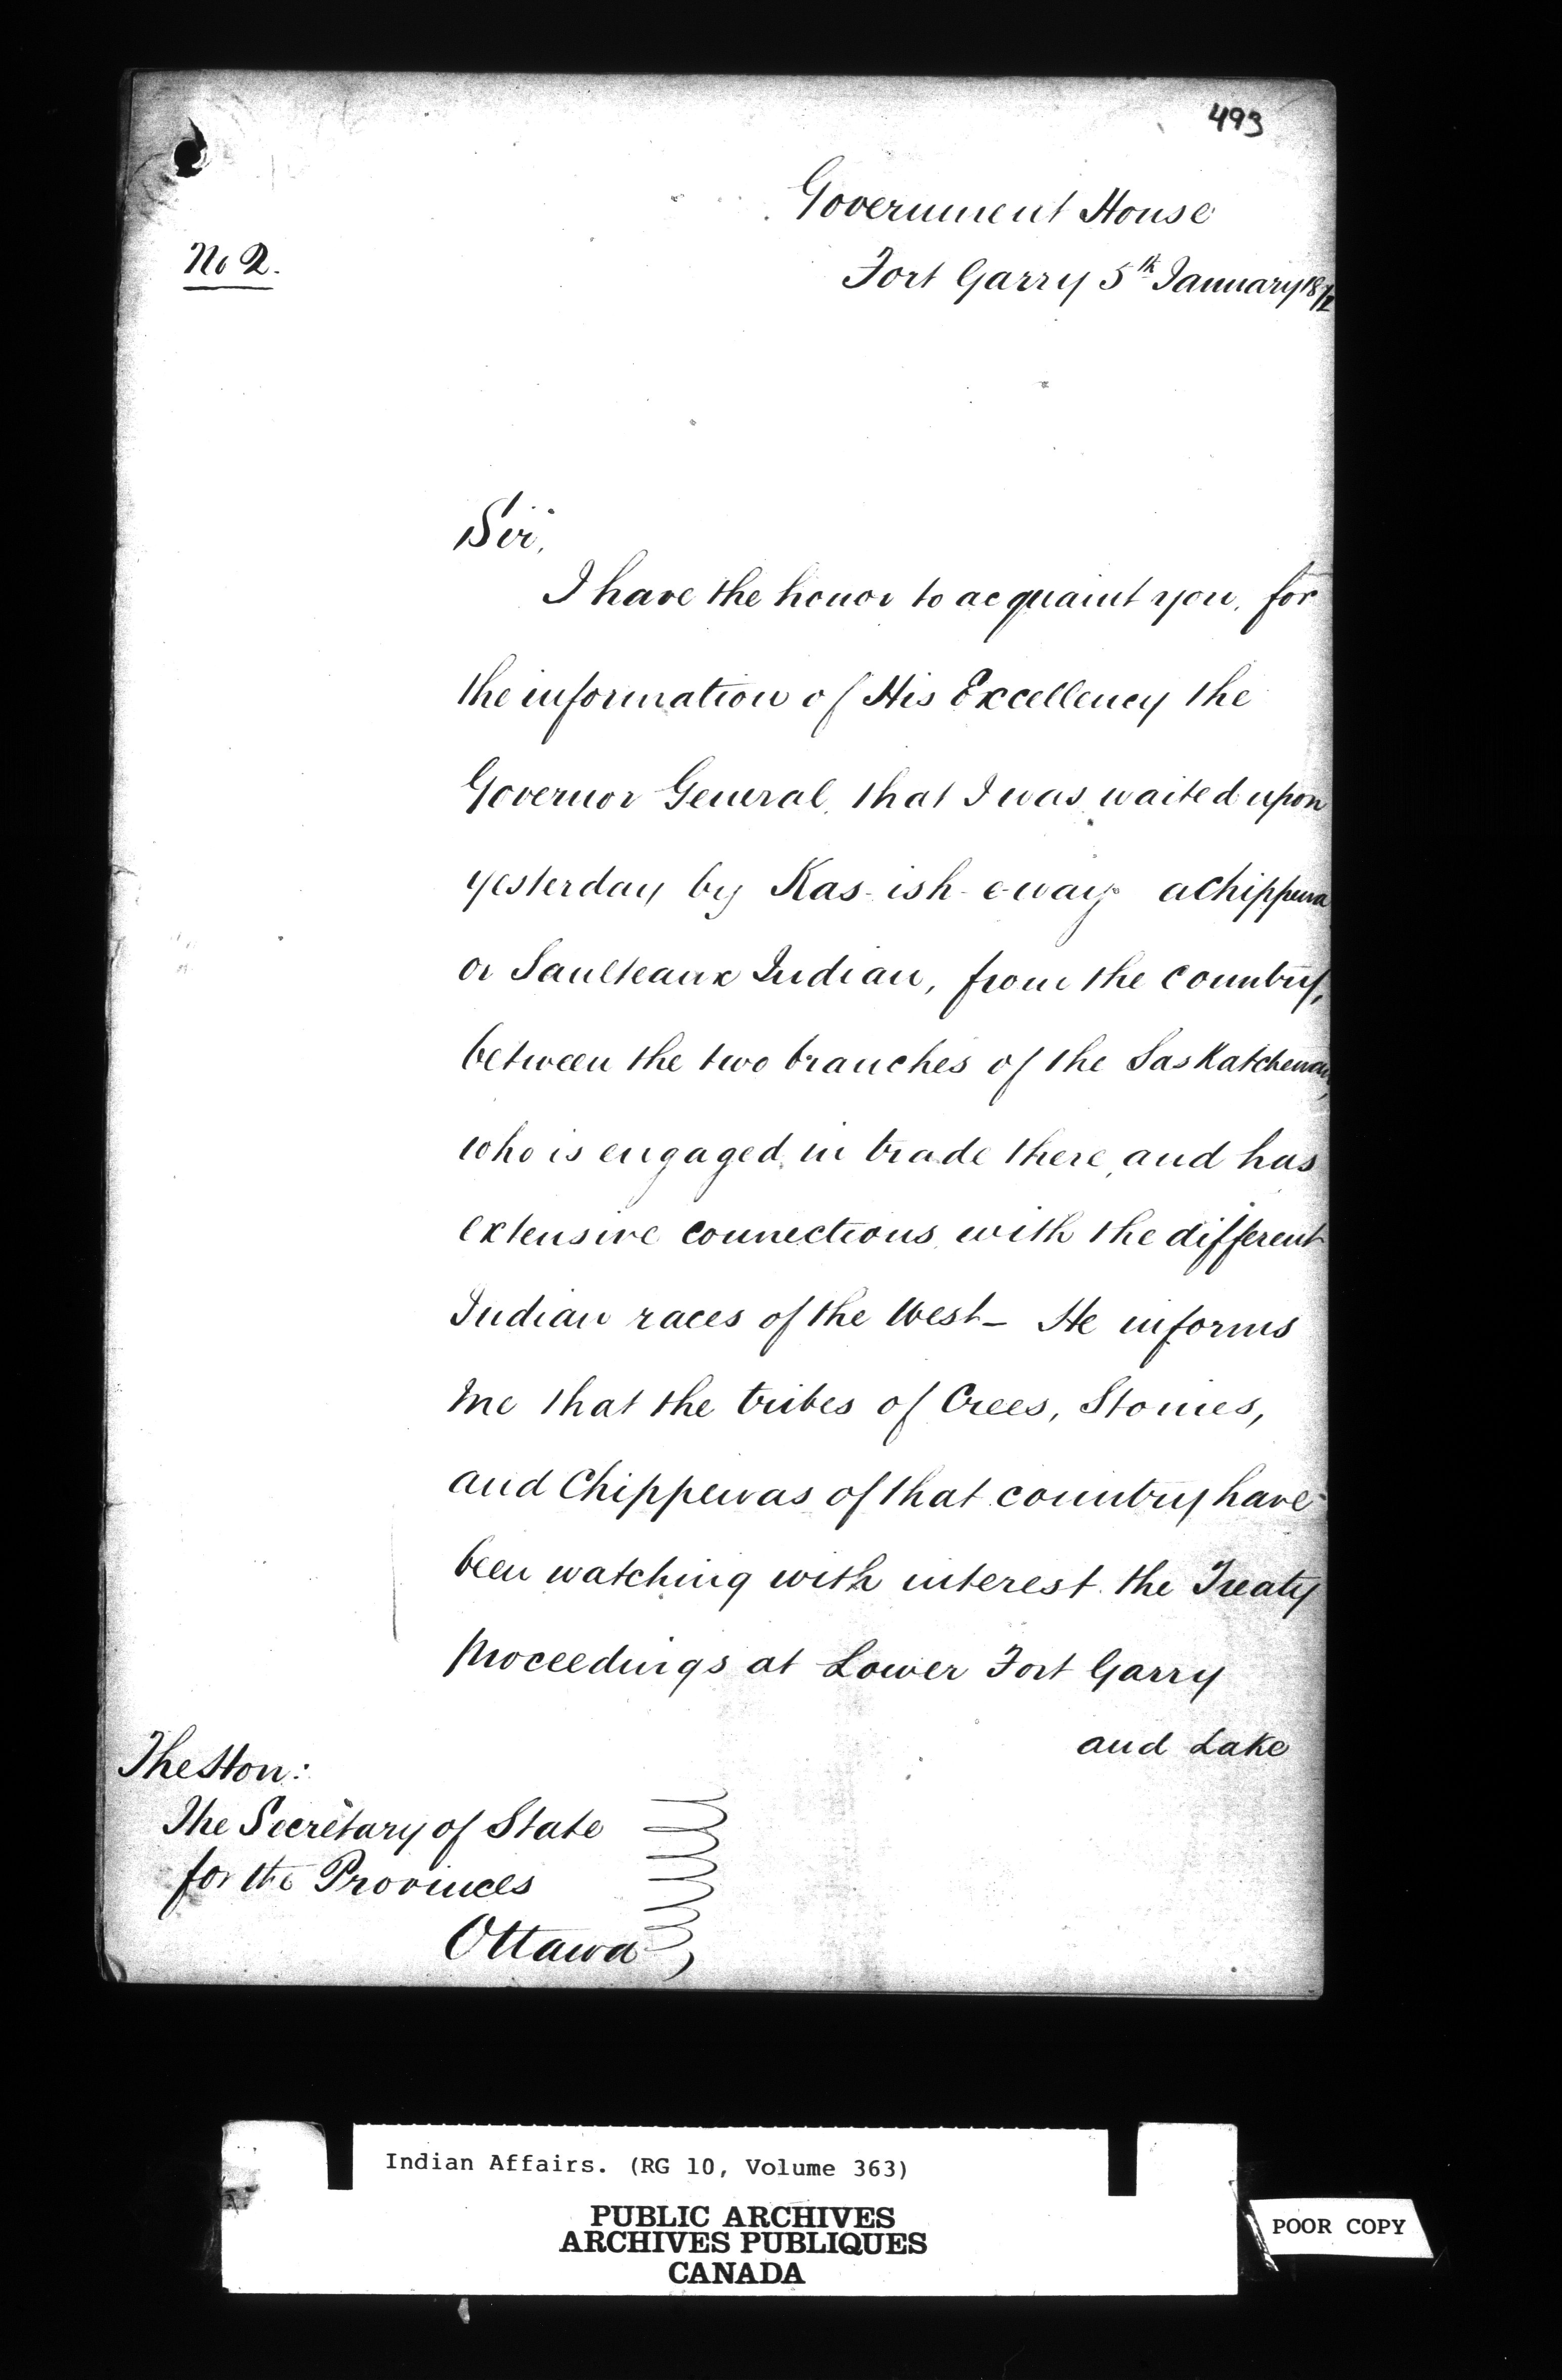 493
Government House
No 2.
Fort Garry 5th January 1872
Sir,
I have the honor to acquaint you, for
the information of His Excellency the
Governor General, that I was waited upon
yesterday by Kas-ish-e-way a Chippewa
or Saulteaux Indian, from the country,
between the two branches of the Saskatchewan,
who is engaged in trade there, and has
extensive connections with the different
Indian races of the West - He informs
me that the tribes of Crees, Stonies,
and Chippewas of that country have
been watching with interest the Treaty
proceedings at Lower Fort Garry
and Lake
The Hon:
The Secretary of State
for the Provinces
Ottawa
Indian Affairs. (RG 10, Volume 363)
PUBLIC ARCHIVES
ARCHIVES PUBLIQUES
CANADA
POOR COPY